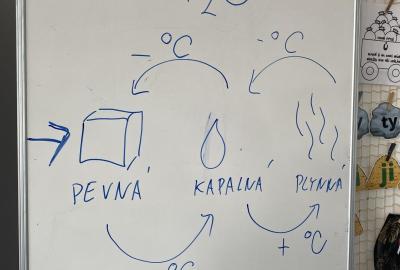 - °C - °C
PEVNÁ KAPALNÁ PLYNNÁ
+ °C
°C
ty
ji